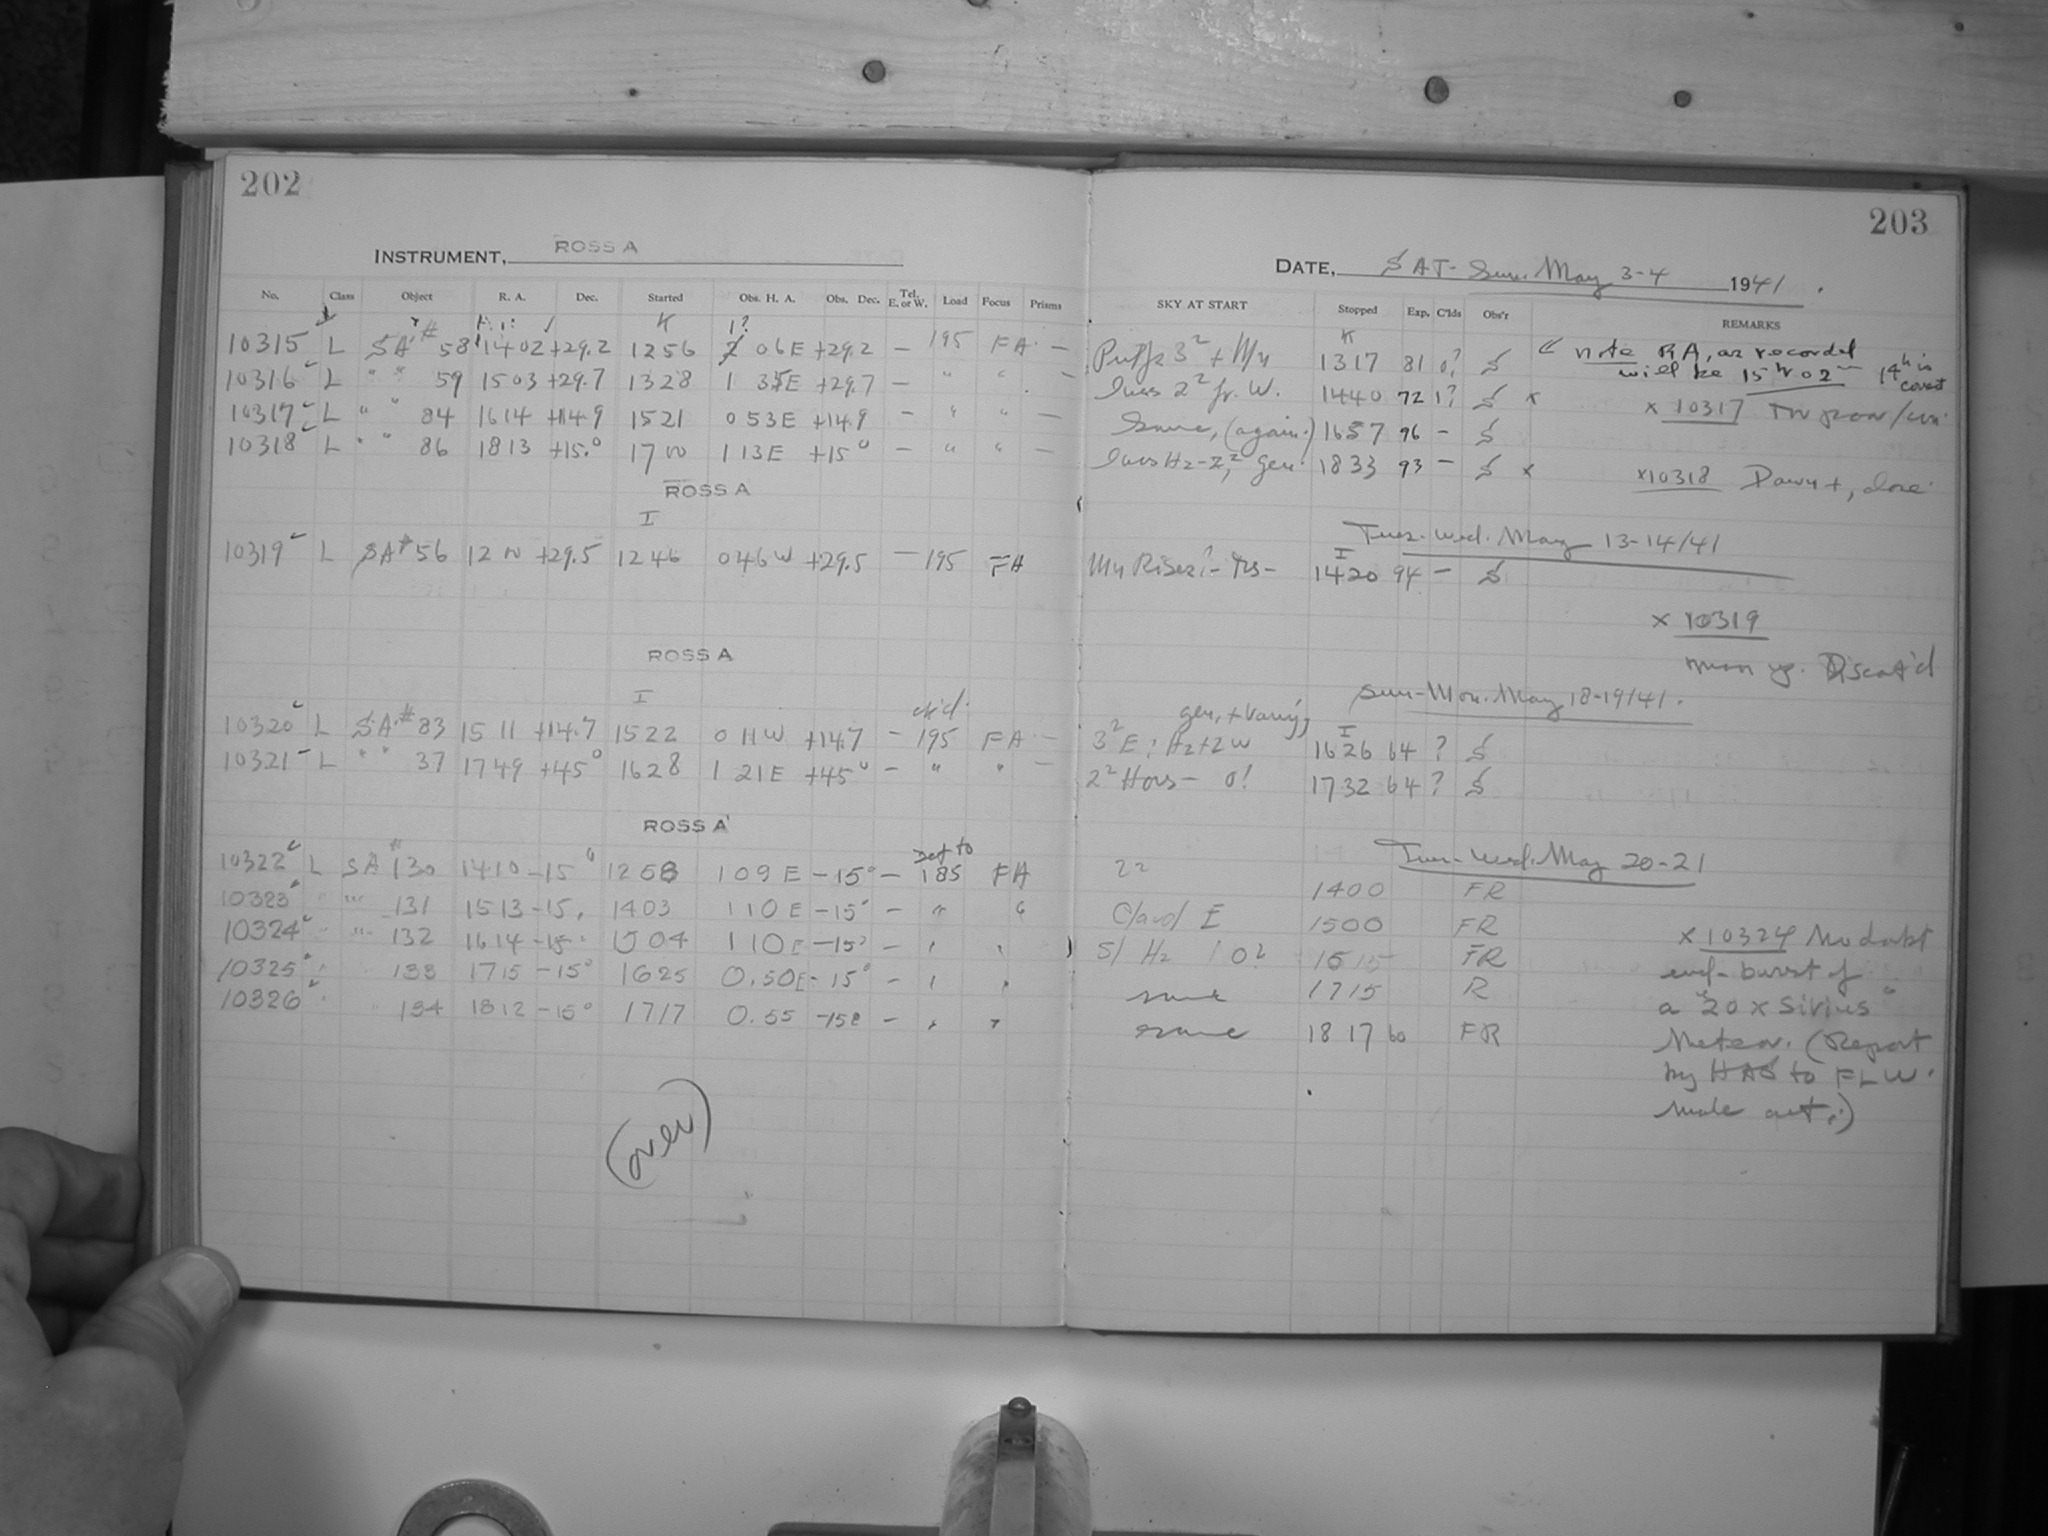 202
INSTRUMENT, ROSS A
No. Class Object R. A. Dec. Started Obs. H. A. Obs. Dec. Tel. E. or W. Load Focus Prisms
10315 L SA # 58 1402 +29.2 1256 06E +29.2 — 195 FA —
10316 L " " 59 1503 +29.7 1328 1 35E +29.7 — " " —
10317 L " " 84 1614 +14.9 1521 0 53E +14.9 — " " —
10318 L " " 86 1813 +15.0 1700 1 13E +15 0 — " " —
ROSS A
I
10319 L SA# 56 12 00 +29.5 1246 046W +29.5 — 195 FA
ROSS A
I
10320 L SA # 83 15 11 +14.7 1522 0 11W +14.7 — 195 FA —
10321 L " " 37 1749 +45 0 1628 1 21E +45 0 — " " —
ROSS A
10322 L SA # 130 1410 -15 0 1258 1 09 E -15° — Set to 185 FA
10323 " " 131 1513 -15 1403 1 10 E -15° — " "
10324 " " 132 1614 -15 1504 1 10E -15° — " "
10325 133 1715 -15° 1625 0.50E -15° — " "
10326 134 1812 -15° 1717 0.55 — " "
(over)
203
DATE, SAT- Sun. May 3-4 1941.
SKY AT START Stopped Exp. C'lds Obs'r REMARKS
1317 81 0? S note RA, as recorded
will be 15h 02m 14h is
2² fr. W. 1440 72 1? S x x 10317
Same, (again.) 1657 96 — S
gen. 1833 93 — S x x10318 Dawn+, close
Tues-Wed. May 13-14/41
I
My Riser?- 1420 94 — S
x 10319
moon up. Discot'd
Sun-Mon. May 18-19/41.
gen, + varying
3² E; Hz+2W 1626 64 ? S
2² Hors— 0! 1732 64 ? S
Tues-Wed. May 20-21
22 1400 FR
Cloud E 1500 FR
Sl Hz FR x 10324 No doubt
same 1715 R burst of
a "20 x Sirius"
same 18 17 60 FR Meteor. (Report
by HAS to FLW.
made out.)